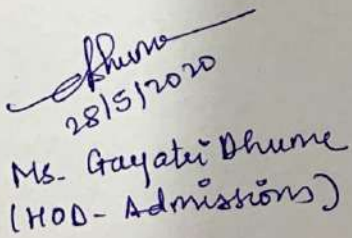 Dhume
28/5/2020
Ms. Gayatri Dhume
(HOD - Admissions)